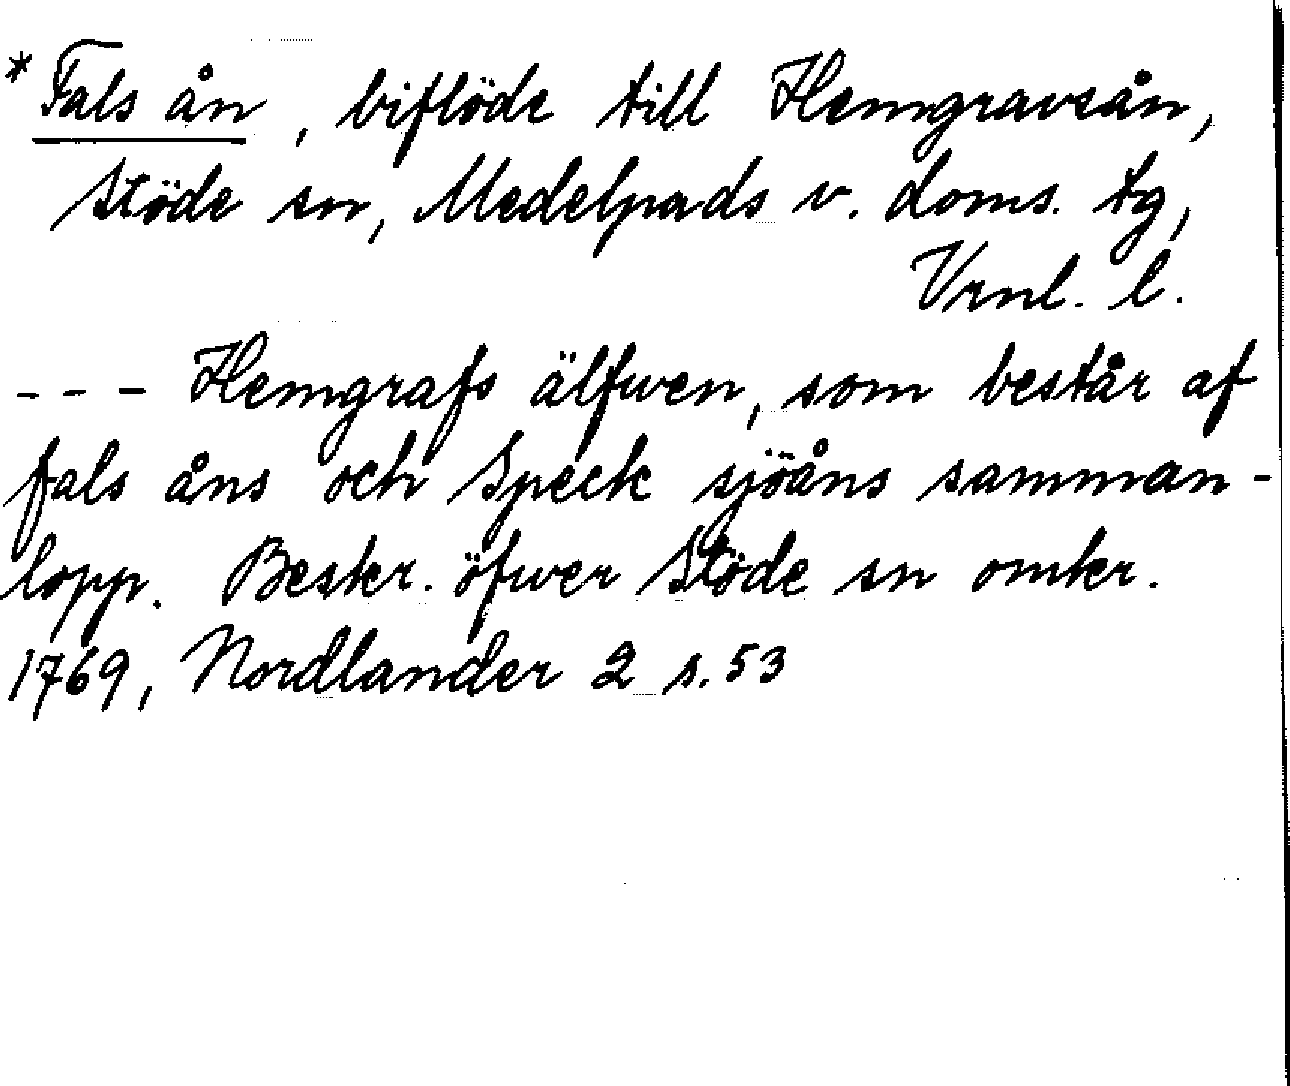 * Fals ån, biflöde till Hemgravsån,
Stöde sn, Medelpads v. doms. tg,
Vrnl. l.
--- Hemgrafs älfwen, som består af
fals åns och Speck sjöåns samman-
lopp. Beskr. öfwer Stöde sn omkr.
1769, Nordlander 2 s. 53